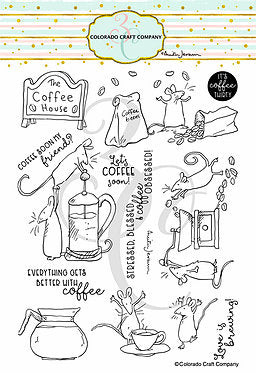 COLORADO CRAFT COMPANY
Anita Jeram
The
Coffee
House
Coffee
bean
IT'S
coffee
THIRTY
COFFEE SOON MY
friend?
Let's
COFFEE
soon!
STRESSED, BLESSED
& coffee
OBSESSED!
Anita Jeram
EVERYTHING GETS
BETTER WITH
coffee
Love is
brewing!
©Colorado Craft Company